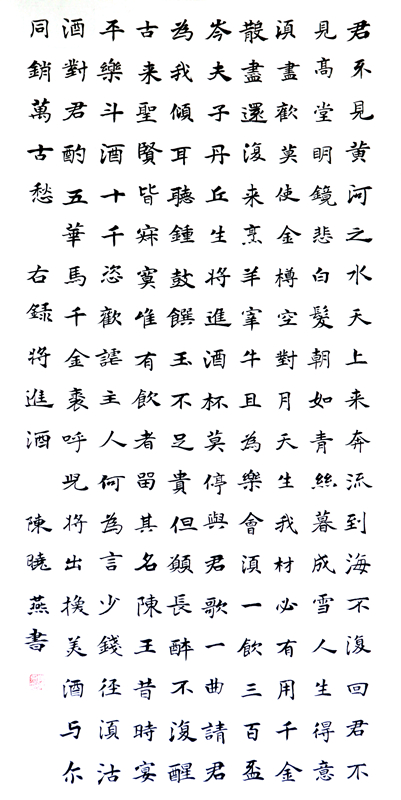 君不見黄河之水天上来奔流到海不復回君不
見高堂明鏡悲白髮朝如青絲暮成雪人生得意
須盡歡莫使金樽空對月天生我材必有用千金
散盡還復来烹羊宰牛且為樂會須一飲三百盃
岑夫子丹丘生將進酒杯莫停與君歌一曲請君
為我傾耳聽鍾鼓饌玉不足貴但願長醉不復醒
古来聖賢皆寂寞惟有飲者畱其名陳王昔時宴
平樂斗酒十千恣歡謔主人何為言少錢徑須沽
酒對君酌五華馬千金裘呼児將出換美酒与尔
同銷萬古愁 右録將進酒 陳曉燕書